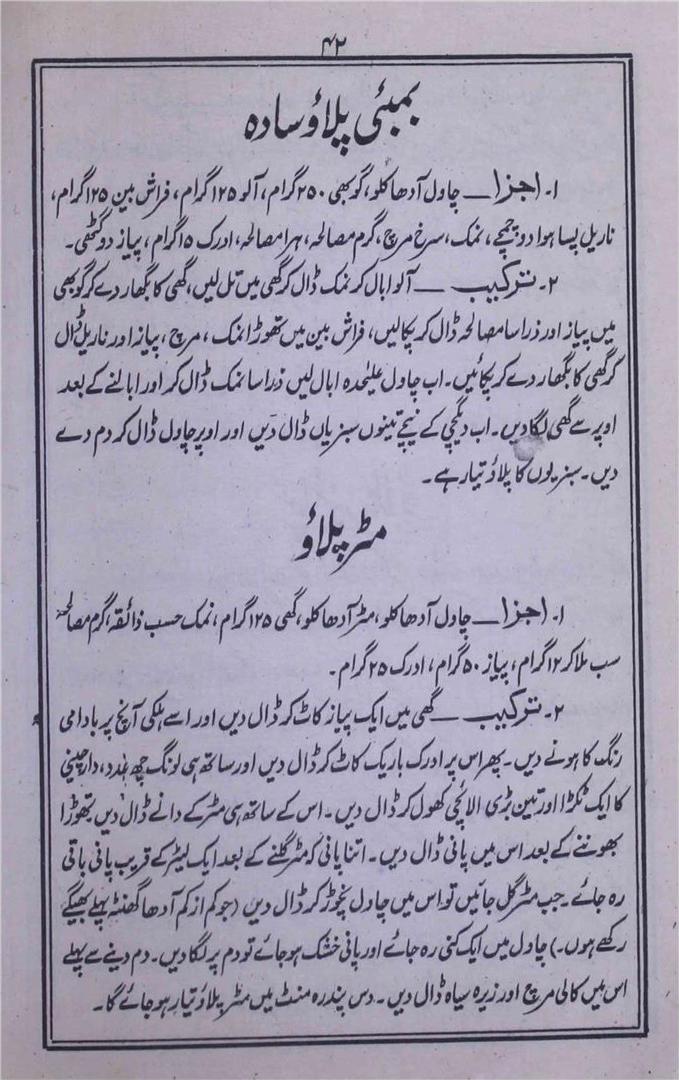 ۴۲
بمبئی پلاؤ سادہ
۱۔ اجزا ــ چاول آدھا کلو، گوبھی ۲۵۰ گرام، آلو ۱۲۵ گرام، فراش بین ۱۲۵ گرام،
ناریل پسا ہوا دو چمچے، نمک، سرخ مرچ، گرم مصالحہ، ہرا مصالحہ، ادرک ۱۵ گرام، پیاز دو گٹھی۔
۲۔ ترکیب ــ آلو ابال کر نمک ڈال کر گھی میں تل لیں، گھی کا بگھار دے کر گوبھی
میں پیاز اور ذرا سا مصالحہ ڈال کر پکالیں، فراش بین میں تھوڑا نمک، مرچ، پیاز اور ناریل ڈال
کر گھی کا بگھار دے کر پکائیں۔ اب چاول علیٰحدہ ابال لیں ذرا سا نمک ڈال کر اور ابالنے کے بعد
اوپر سے گھی لگادیں۔ اب دیگچی کے نیچے تینوں سبزیاں ڈال دیں اور اوپر چاول ڈال کر دم دے
دیں۔ سبزیوں کا پلاؤ تیار ہے۔
مٹر پلاؤ
۱۔ اجزا ــ چاول آدھا کلو، مٹر آدھا کلو، گھی ۱۲۵ گرام، نمک حسب ذائقہ، گرم مصالحہ
سب ملاکر ۱۲ گرام، پیاز ۵۰ گرام، ادرک ۲۵ گرام۔
۲۔ ترکیب ــ گھی میں ایک پیاز کاٹ کر ڈال دیں اور اسے ہلکی آنچ پر بادامی
رنگ کا ہونے دیں۔ پھر اس پر ادرک باریک کاٹ کر ڈال دیں اور ساتھ ہی لونگ چھ عدد، دارچینی
کا ایک ٹکڑا اور تین بڑی الائچی کھول کر ڈال دیں۔ اس کے ساتھ ہی مٹر کے دانے ڈال دیں تھوڑا
بھوننے کے بعد اس میں پانی ڈال دیں۔ اتنا پانی کہ مٹر گلنے کے بعد ایک لیٹر کے قریب پانی باقی
رہ جائے۔ جب مٹر گل جائیں تو اس میں چاول نچوڑ کر ڈال دیں (جو کم از کم آدھا گھنٹہ پہلے بھیگے
رکھے ہوں۔) چاول میں ایک کنی رہ جائے اور پانی خشک ہوجائے تو دم پر لگا دیں۔ دم دینے سے پہلے
اس میں کالی مرچ اور زیرہ سیاہ ڈال دیں۔ دس پندرہ منٹ میں مٹر پلاؤ تیار ہو جائے گا۔